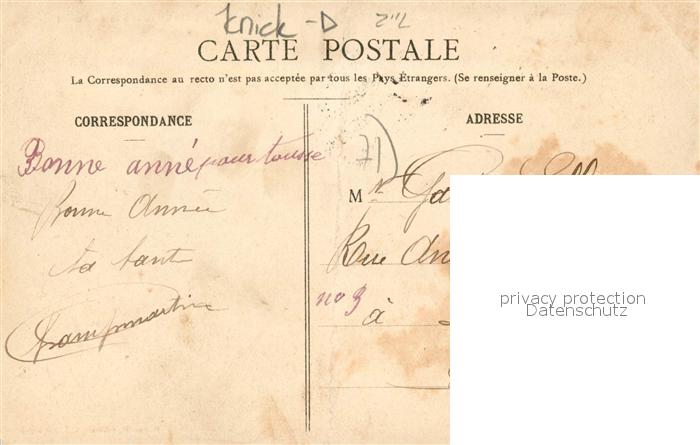 Knick-D
CARTE POSTALE
La Correspondance au recto n'est pas acceptée par tous les Pays Étrangers. (Se renseigner à la Poste.)
CORRESPONDANCE
ADRESSE
Bonne année pour tousse
71
Bonne Année
M
ta tante
Rue
no 3
à
privacy protection
Datenschutz